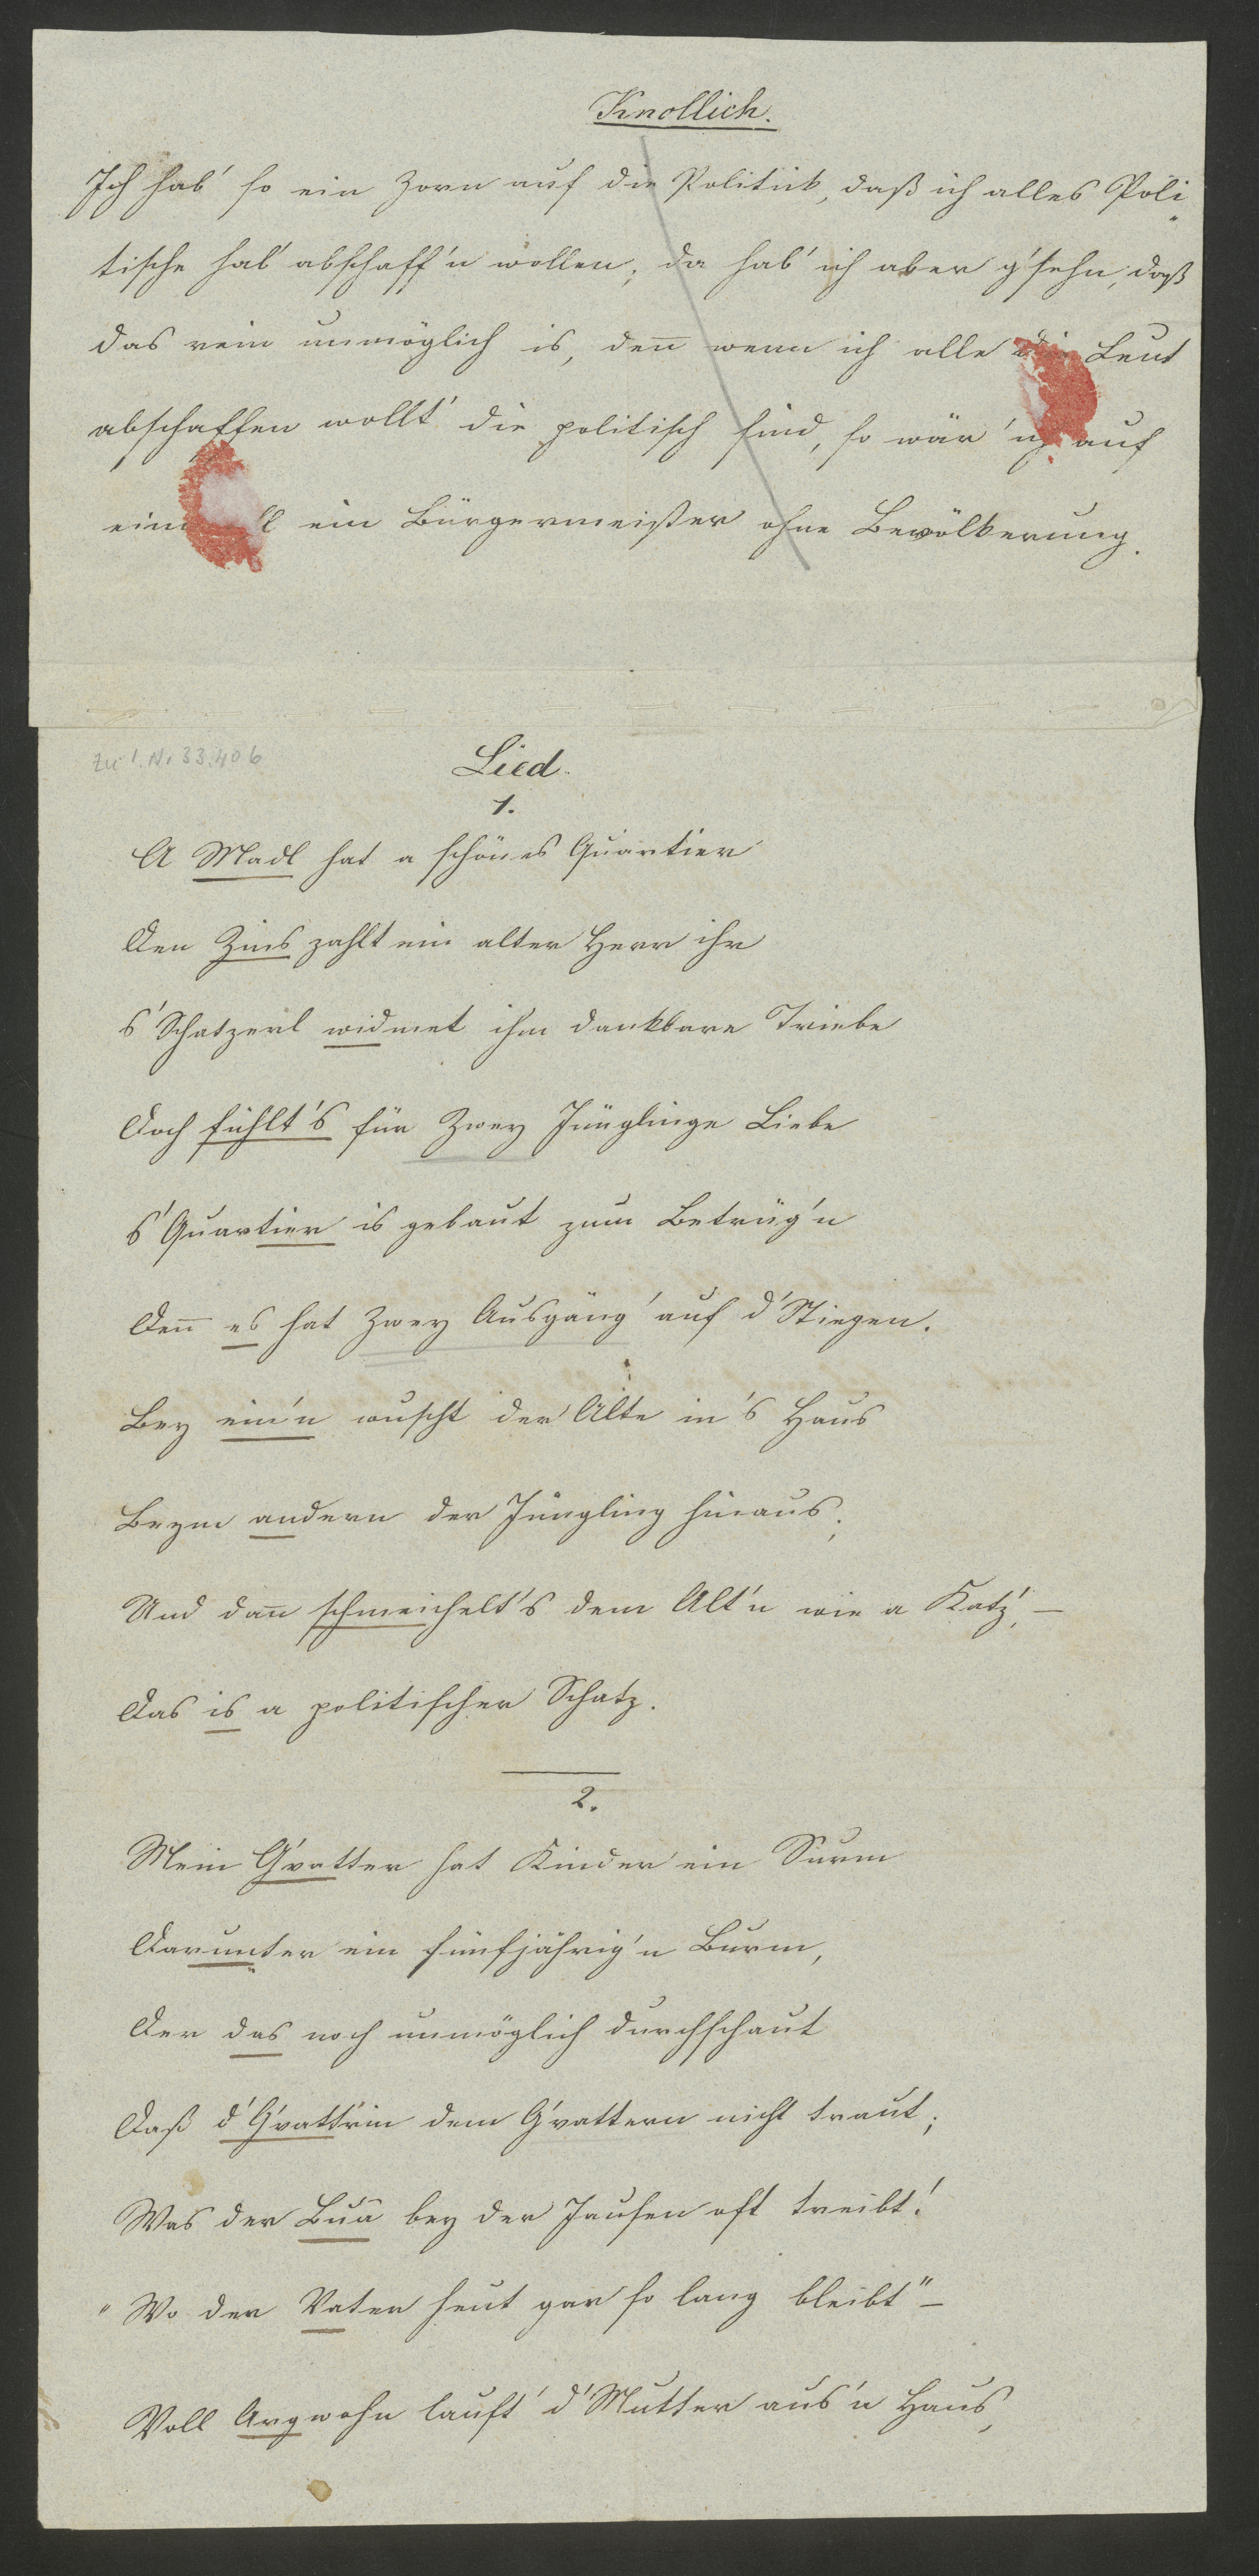 Knollich.
Ich hab' so ein Zorn auf die Politik, daß ich alles Poli„
tische hab' abschaff'n wollen; da hab' ich aber g'sehn, daß
das rein unmöglich is, den̄ wenn ich alle die Leut
abschaffen wollt' die politisch sind, so wär' ich auf
ein ein Bürgermeister ohne Bevölkerung.
Zu I.N. 33.406
Lied.
1.
A Madl hat a schönes Quartier
Den Zins zahlt ein alter Herr ihr
s'Schatzerl widmet ihm dankbare Triebe
Doch fühlt's für zwey Jünglinge Liebe
s'Quartier is gebaut zum Betrüg'n
Den̄ es hat zwey Ausgäng' auf d'Stiegen.
Bey ein'n wuscht der Alte in's Haus
Beym andern der Jüngling hinaus;
Und dan̄ schmeichelt's dem Alt'n wie a Katz', —
Das is a politischer Schatz.
2.
Mein G'vatter hat Kinder ein Surm
Darunter ein fünfjährig'n Burm,
Der das noch unmöglich durchschaut
Daß d'G'vatt'rin dem G'vattern nicht traut;
Was der Bua bey der Jausen oft treibt!
„Wo der Vater heut gar so lang bleibt" —
Voll Argwohn lauft d'Mutter aus'n Haus,